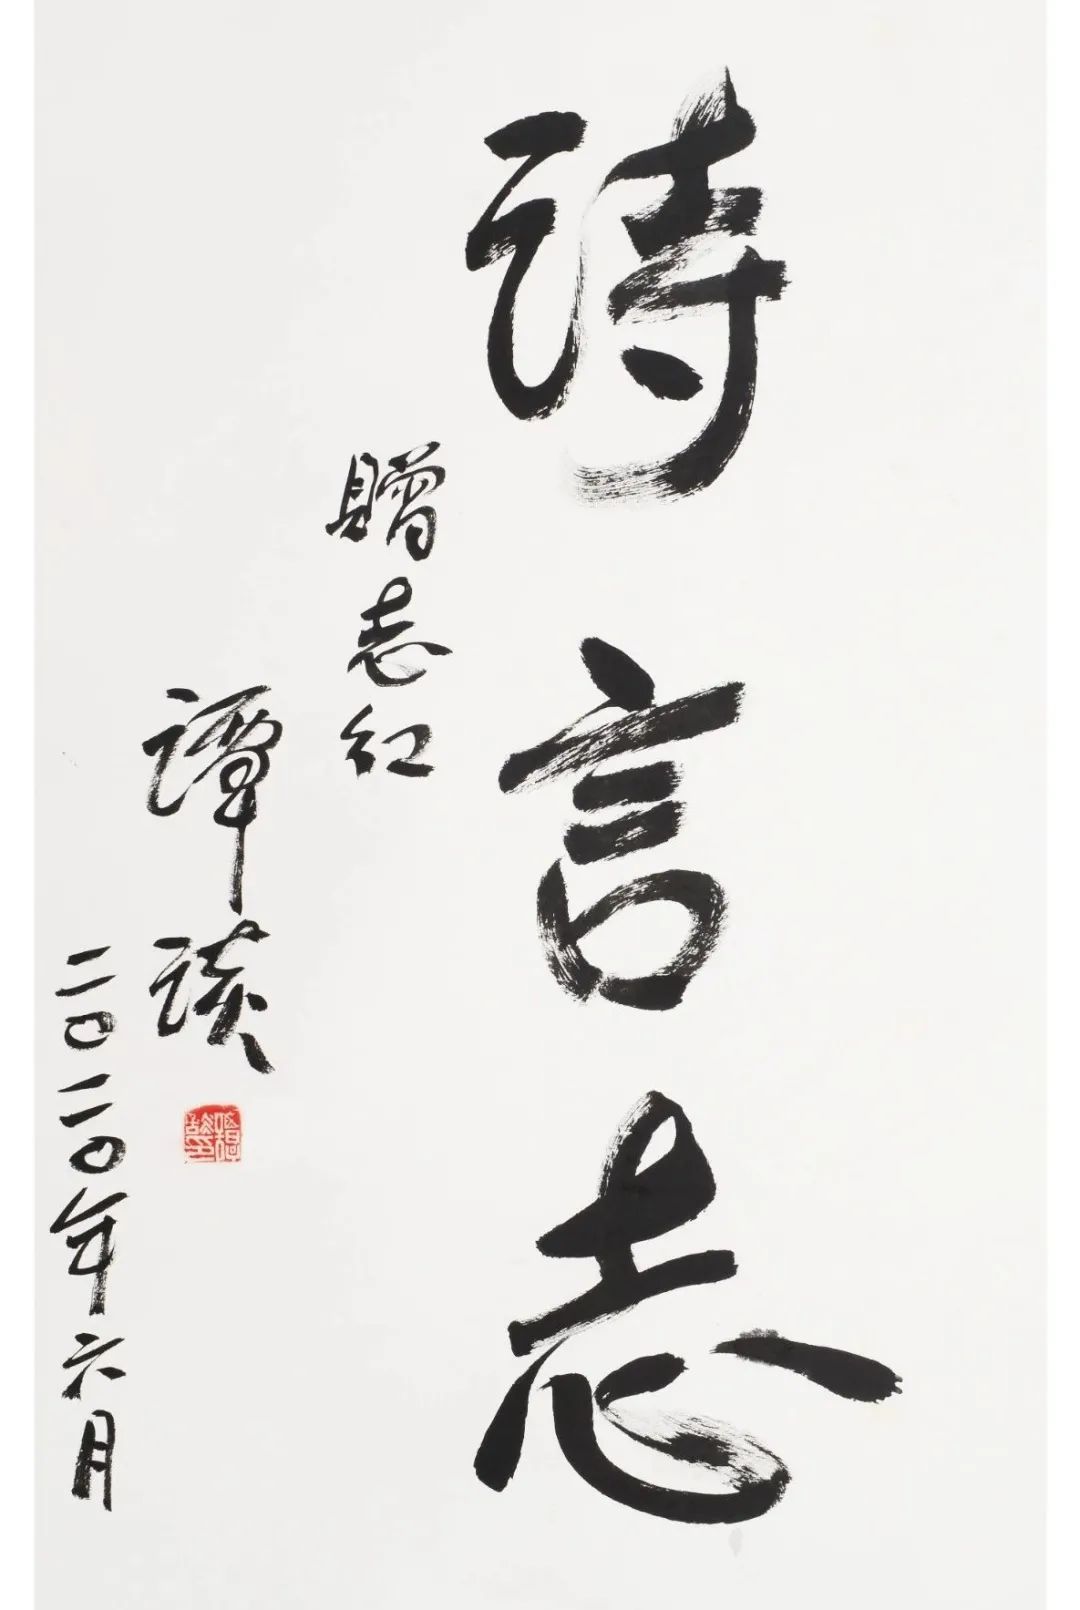 詩言志
贈志红
譚談
二〇二〇年六月